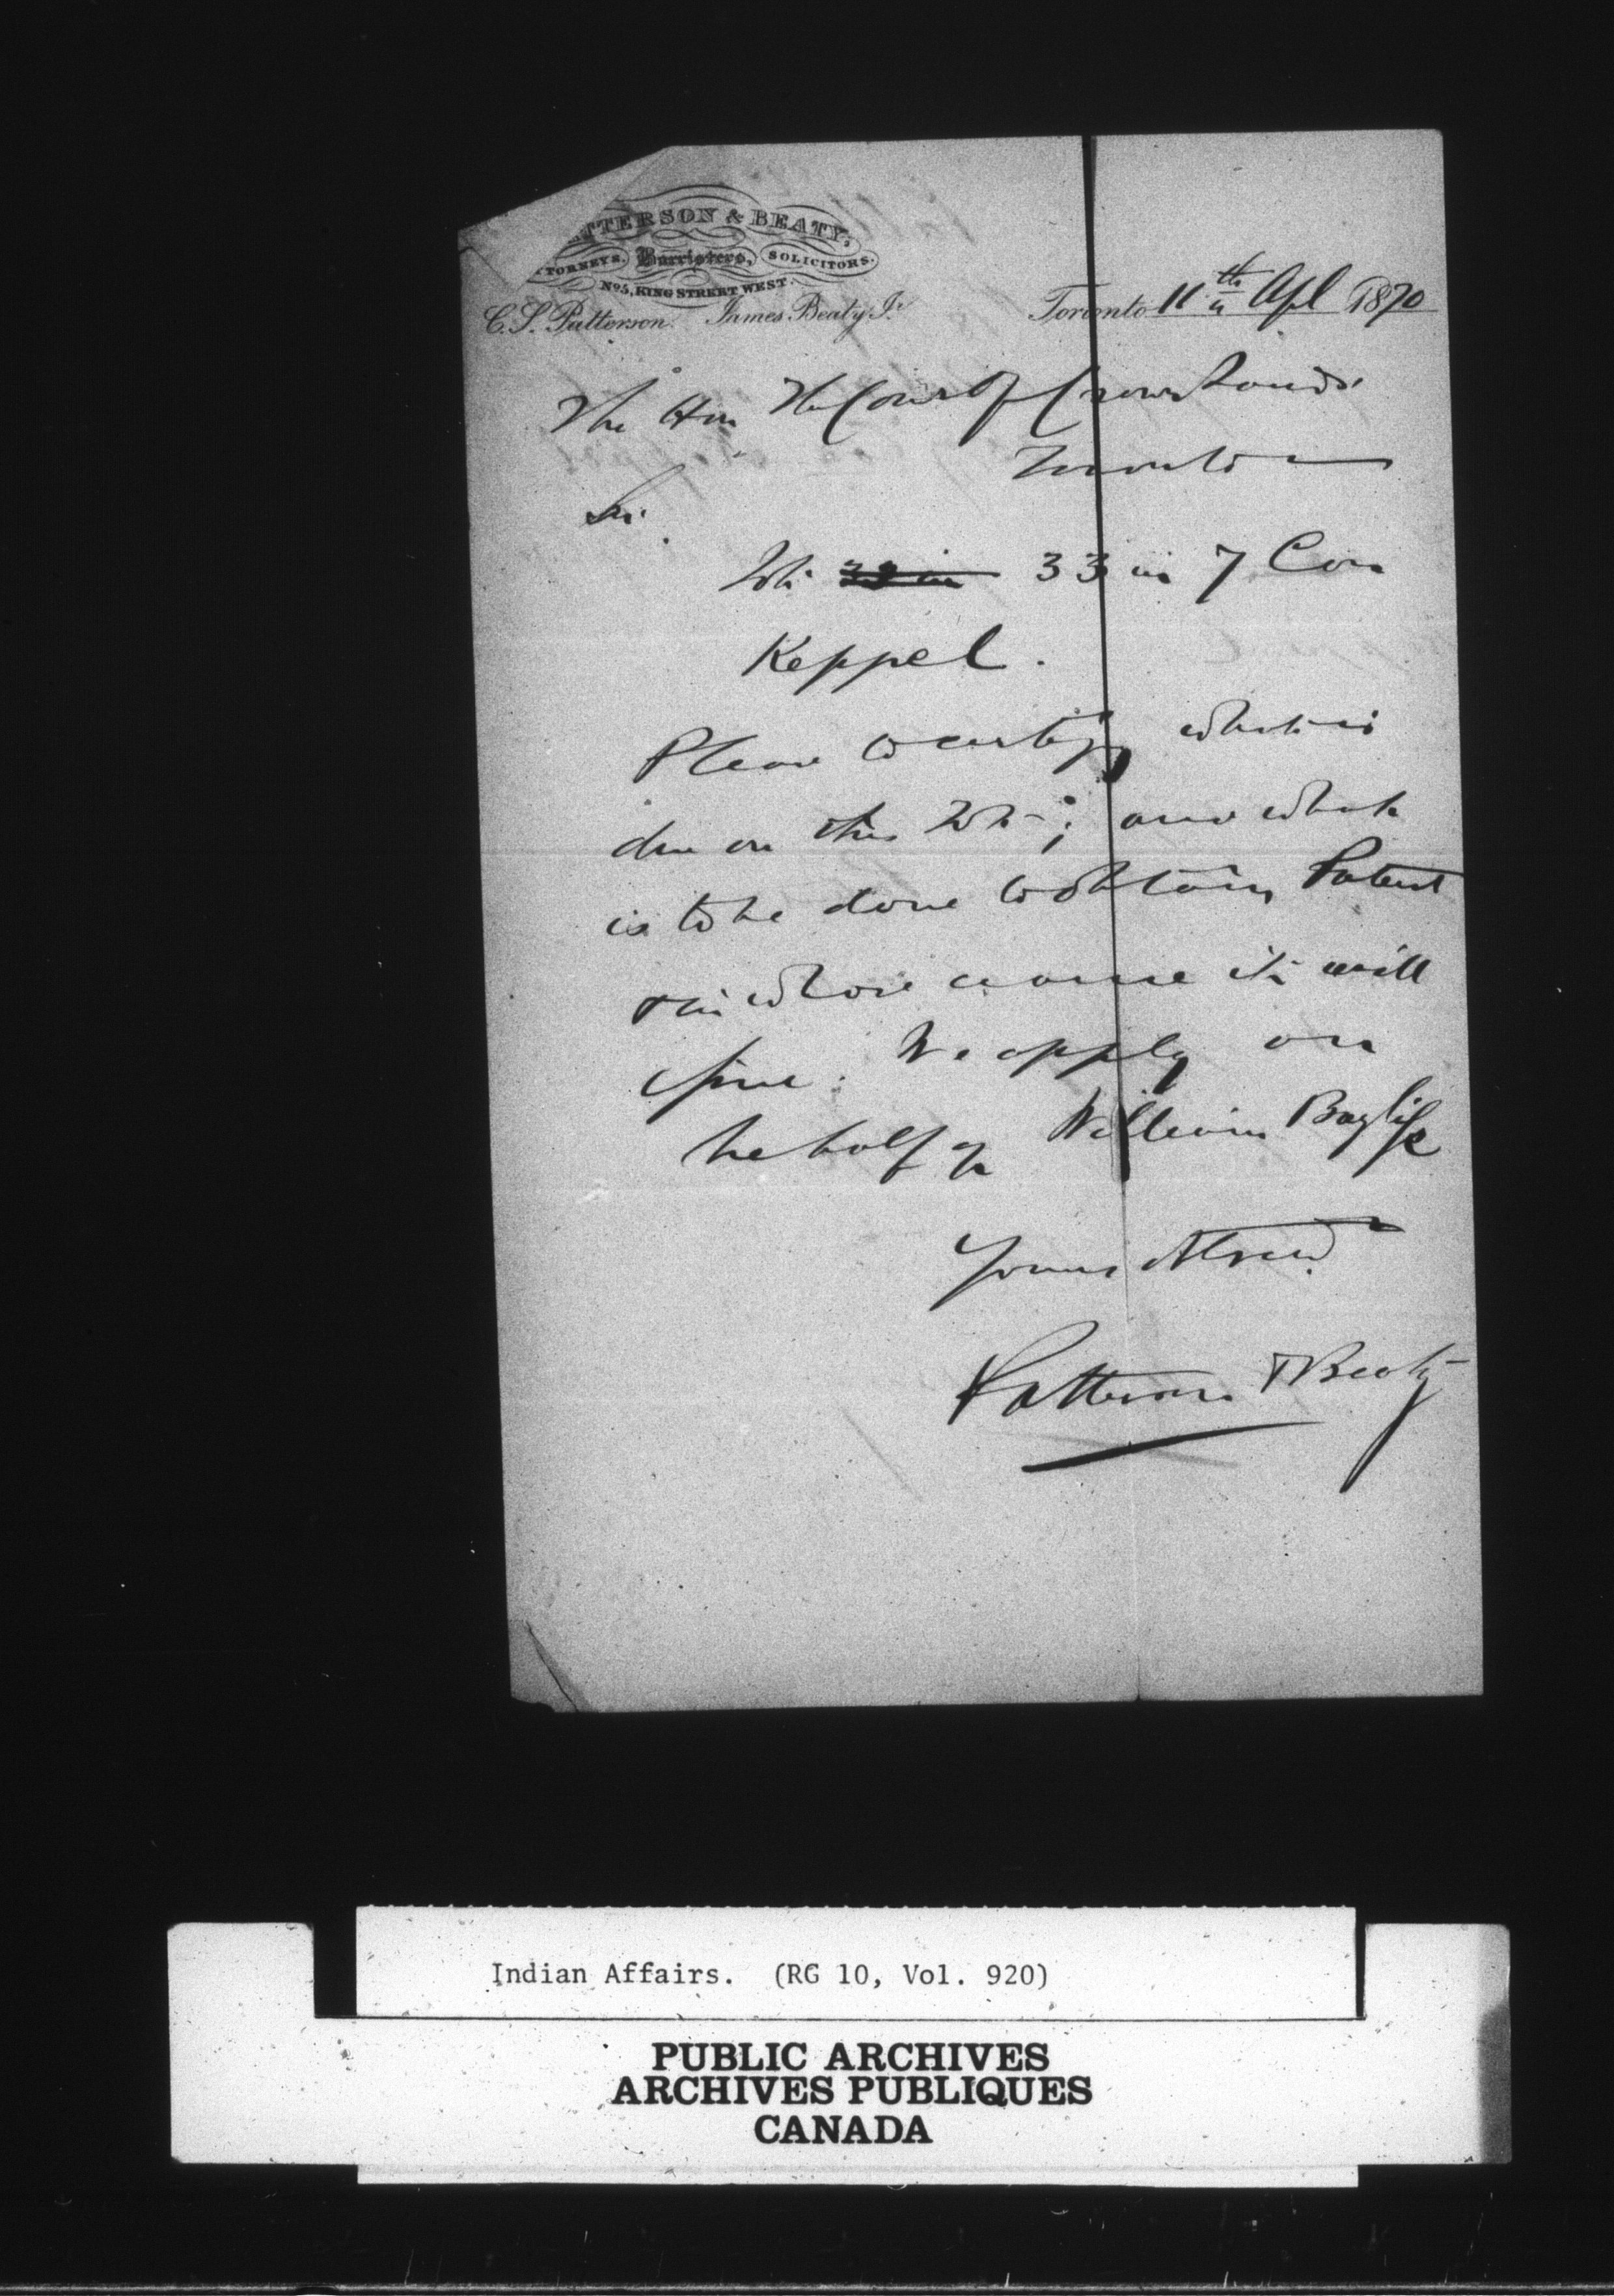 TTERSON & BEATY,
TTORNEYS, Barristers, SOLICITORS.
No 5, KING STREET WEST.
C. S. Patterson. James Beaty Jr.
Toronto 11th Apl 1870
The Hon The Comr of Crown Lands
Toronto
Sir.
Lot 33 in 7 Con
Keppel.
Please to certify what is
due on this Lot; and what
is to be done to obtain Patent
& in whose name it will
issue. We apply on
behalf of William Bayliss
Yours
Patterson & Beaty
Indian Affairs. (RG 10, Vol. 920)
PUBLIC ARCHIVES
ARCHIVES PUBLIQUES
CANADA